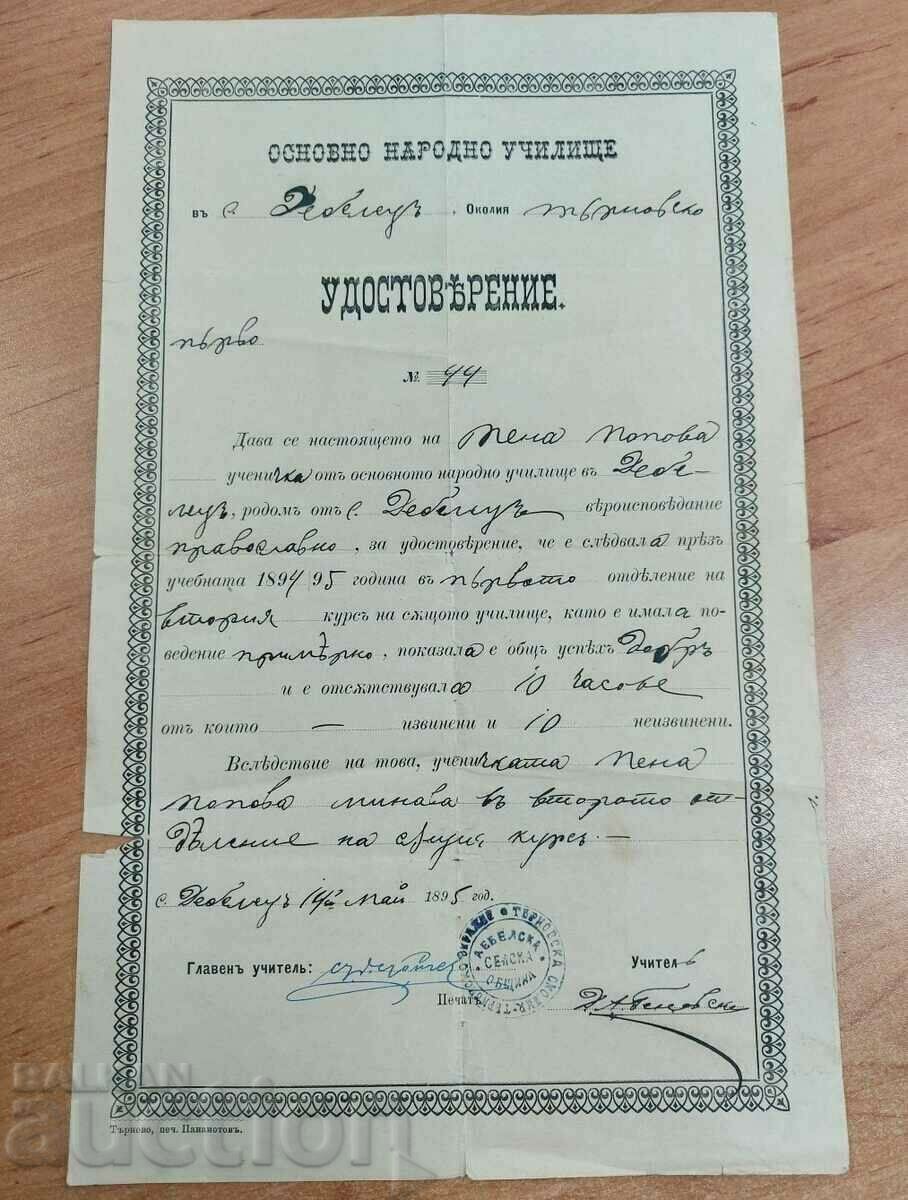 ОСНОВНО НАРОДНО УЧИЛИЩЕ
въ с. Дебелецъ, Околия Търновско
УДОСТОВѢРЕНИЕ.
първо
№ 44
Дава се настоящето на Пена Попова
ученичка отъ основното народно училище въ Дебе-
лецъ, родомъ отъ с. Дебелецъ вѣроисповѣдание
православно, за удостовѣрение, че е слѣдвала прѣзъ
учебната 1894/95 година въ първото отдѣление на
втория курсъ на сѫщото училище, като е имала по-
ведение примѣрно, показала е общъ успѣхъ Добръ
и е отсѫтствувала 10 часове
отъ които — извинени и 10 неизвинени.
Вслѣдствие на това, ученичката Пена
Попова минава въ второто от-
дѣление на сѫщия курсъ.—
с. Дебелецъ 14й май 1895 год.
Главенъ учитель:
Учитель
Печатъ
ДЕБЕЛСКА СЕЛСКА ОБЩИНА
Търново, печ. Панайотовъ.
BALKAN
auction